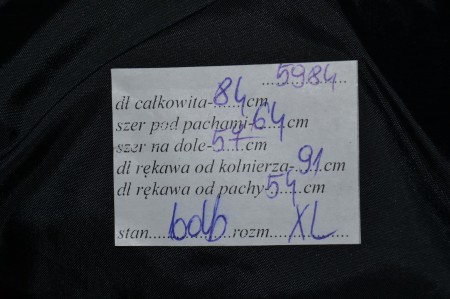 5984
dł całkowita-84cm
szer pod pachami-64cm
szer na dole-57cm
dł rękawa od kolnierza-91cm
dł rękawa od pachy-54cm
stan bdb rozm XL